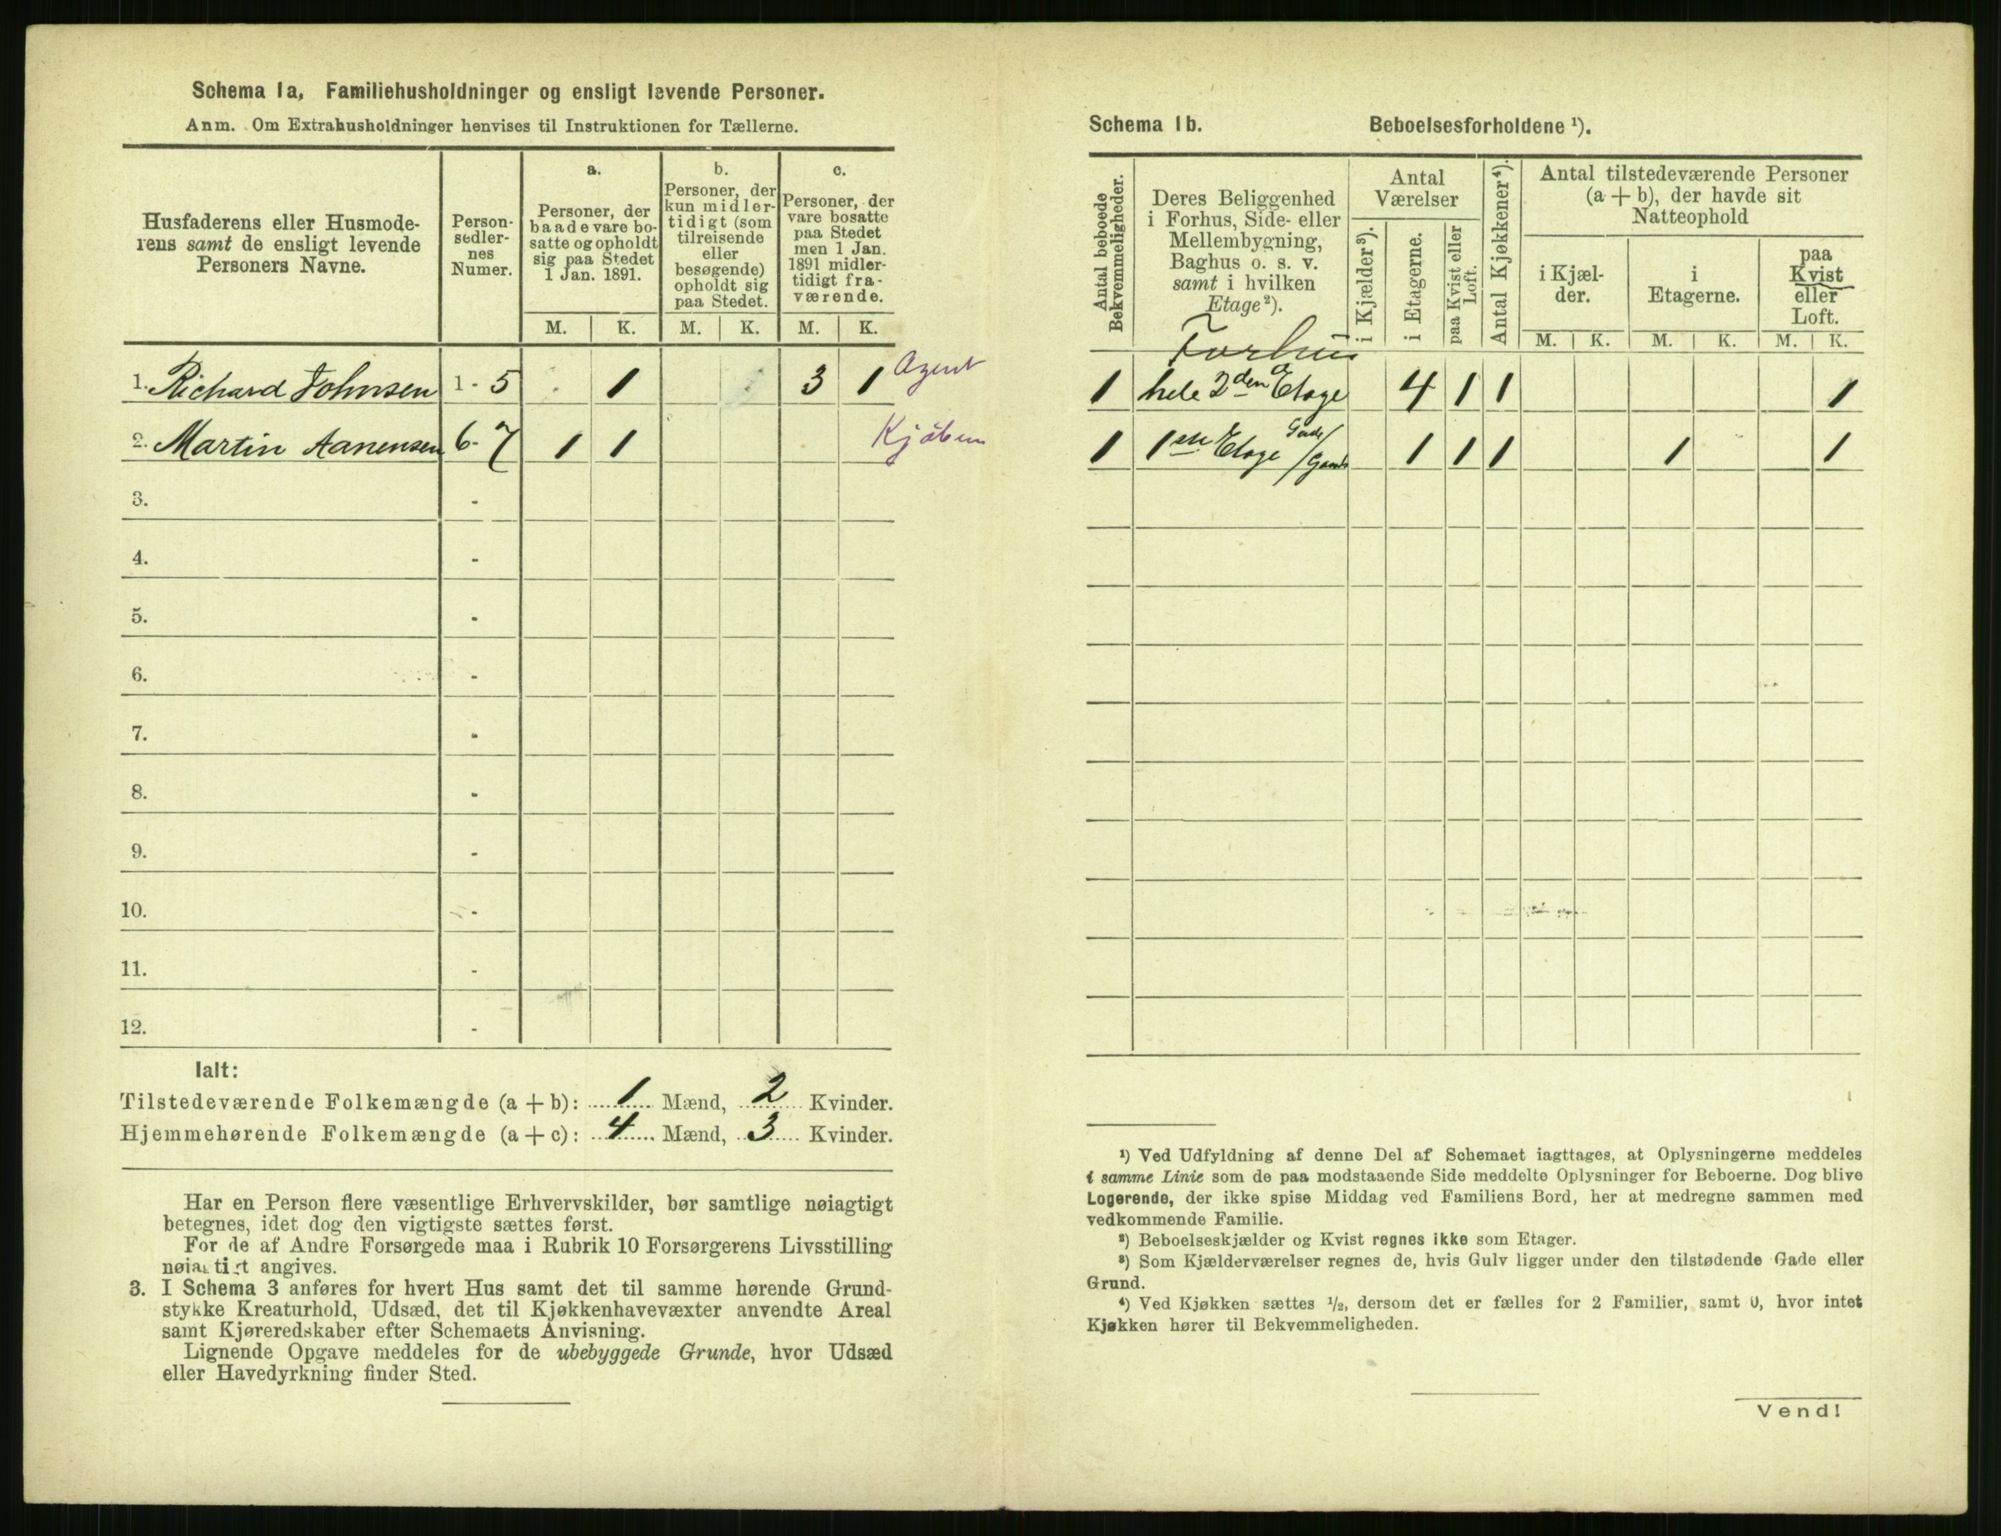 Schema 1a, Familiehusholdninger og ensligt levende Personer.
Anm. Om Extrahusholdninger henvises til Instruktionen for Tællerne.
Husfaderens eller Husmode-
rens samt de ensligt levende
Personers Navne.
Person-
sedler-
nes
Numer.
a.
Personer, der
baade vare bo-
satte og opholdt
sig paa Stedet
1 Jan. 1891.
b.
Personer, der
kun midler-
tidigt (som
tilreisende
eller
besøgende)
opholdt sig
paa Stedet.
c.
Personer, der
vare bosatte
paa Stedet
men 1 Jan.
1891 midler-
tidigt fra-
værende.
M. K. M. K. M. K.
1. Richard Johnsen 1 - 5 1 3 1 Agent
2. Martin Aanensen 6 - 7 1 1 Kjøbm
3. -
4. -
5. -
6. -
7. -
8. -
9. -
10. -
11. -
12. -
Ialt:
Tilstedeværende Folkemængde (a + b): 1 Mænd, 2 Kvinder.
Hjemmehørende Folkemængde (a + c): 4 Mænd, 3 Kvinder.
Har en Person flere væsentlige Erhvervskilder, bør samtlige nøiagtigt
betegnes, idet dog den vigtigste sættes først.
For de af Andre Forsørgede maa i Rubrik 10 Forsørgerens Livsstilling
nøiagtigt angives.
3. I Schema 3 anføres for hvert Hus samt det til samme hørende Grund-
stykke Kreaturhold, Udsæd, det til Kjøkkenhavevæxter anvendte Areal
samt Kjøreredskaber efter Schemaets Anvisning.
Lignende Opgave meddeles for de ubebyggede Grunde, hvor Udsæd
eller Havedyrkning finder Sted.
Schema 1b. Beboelsesforholdene ¹).
Antal beboede
Bekvemmeligheder.
Deres Beliggenhed
i Forhus, Side- eller
Mellembygning,
Baghus o. s. v.
samt i hvilken
Etage²).
Antal
Værelser
i Kjælder³).
i Etagerne.
paa Kvist eller
Loft.
Antal Kjøkkener⁴).
Antal tilstedeværende Personer
(a + b), der havde sit
Natteophold
i Kjæl-
der.
i
Etagerne.
paa
Kvist
eller
Loft.
M. K. M. K. M. K.
Forhus
1 hele 2den Etage 4 1 1 1
1 1ste Etage 1 1 1 1 1
¹) Ved Udfyldning af denne Del af Schemaet iagttages, at Oplysningerne meddeles
i samme Linie som de paa modstaaende Side meddelte Oplysninger for Beboerne. Dog blive
Logerende, der ikke spise Middag ved Familiens Bord, her at medregne sammen med
vedkommende Familie.
²) Beboelseskjælder og Kvist regnes ikke som Etager.
³) Som Kjælderværelser regnes de, hvis Gulv ligger under den tilstødende Gade eller
Grund.
⁴) Ved Kjøkken sættes ½, dersom det er fælles for 2 Familier, samt 0, hvor intet
Kjøkken hører til Bekvemmeligheden.
Vend!